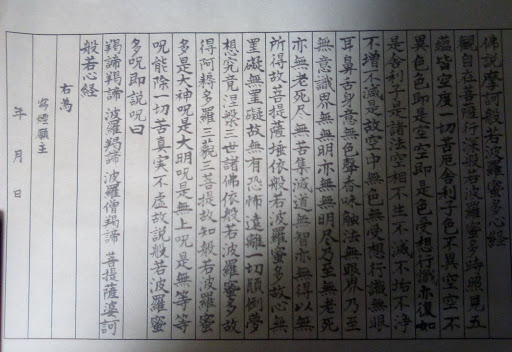 佛説摩訶般若波羅蜜多心経
觀自在菩薩行深般若波羅蜜多時照見五
蘊皆空度一切苦厄舎利子色不異空空不
異色色即是空空即是色受想行識亦復如
是舎利子是諸法空相不生不滅不垢不浄
不増不減是故空中無色無受想行識無眼
耳鼻舌身意無色聲香味触法無眼界乃至
無意識界無無明亦無無明尽乃至無老死
亦無老死尽無苦集滅道無智亦無得以無
所得故菩提薩埵依般若波羅蜜多故心無
罣礙無罣礙故無有恐怖遠離一切顛倒夢
想究竟涅槃三世諸佛依般若波羅蜜多故
得阿耨多羅三藐三菩提故知般若波羅蜜
多是大神呪是大明呪是無上呪是無等等
呪能除一切苦真実不虚故説般若波羅蜜
多呪即説呪曰
羯諦羯諦 波羅羯諦 波羅僧羯諦 菩提薩婆訶
般若心経
右為
寫經願主
年 月 日